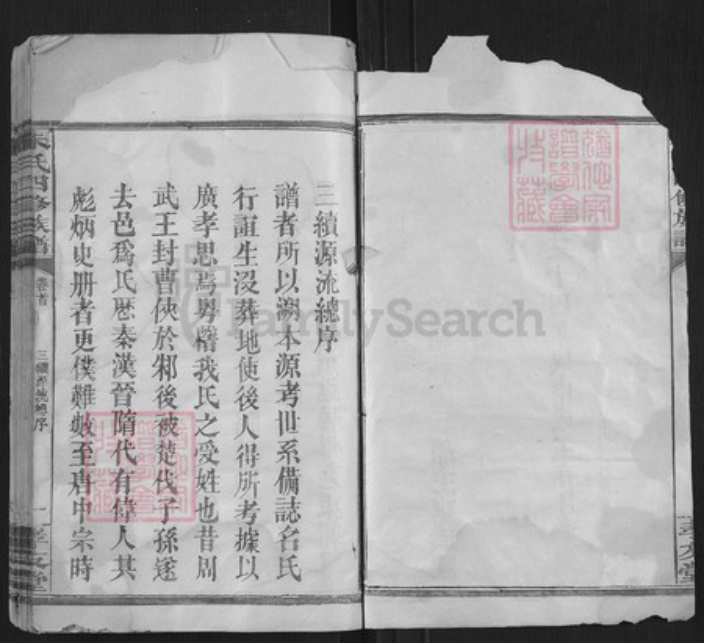 三續源流總序
譜者所以溯本源考世系備誌名氏
行誼生沒葬地使後人得所考據以
廣孝思焉粤稽我氏之受姓也昔周
武王封曹俠於邾後被楚伐子孫遂
去邑爲氏歷秦漢晉隋代有偉人其
彪炳史册者更僕難數至唐中宗時
朱氏四修族譜
卷首
三續源流總序
一
孝友堂
孝友堂
FamilySearch